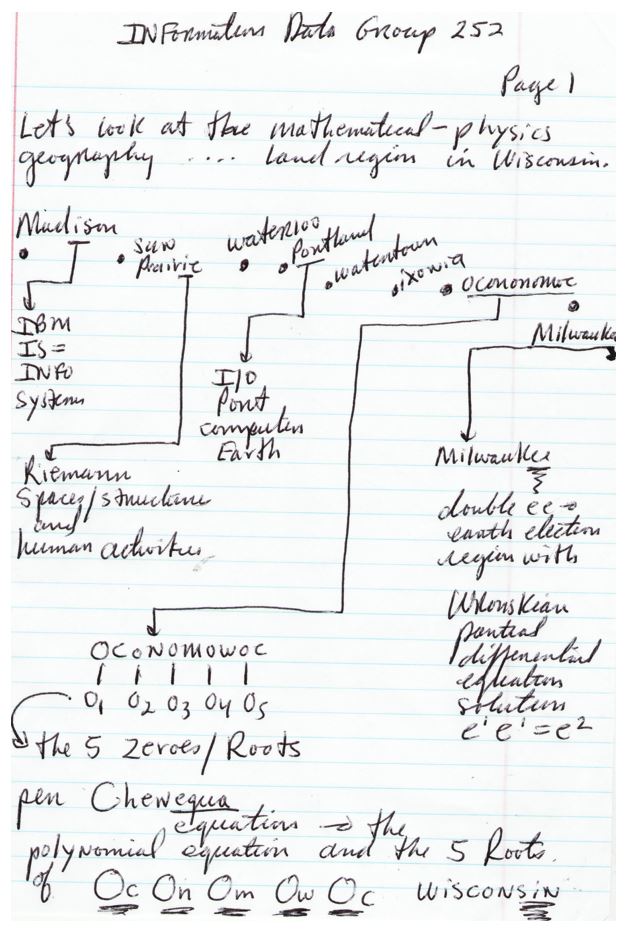 INFormation Data Group 252
Page 1
Let's look at the mathematical-physics
geography .... land region in Wisconsin.
Madison
sun
prairie
waterloo
Portland
watertown
ixonia
Oconomowoc
Milwaukee
IBM
IS=
INFO
Systems
I/O
Port
computer
Earth
Riemann
Spaces/structure
and
human activities
Milwaukee
double ee →
earth election
region with
Wronskian
partial
differential
equation
solution
e¹ e¹ = e²
OCONOMOWOC
O₁ O₂ O₃ O₄ O₅
the 5 zeroes/Roots
pen Chenequa
equation → the
polynomial equation and the 5 Roots.
of Oc On Om Ow Oc WISCONSIN